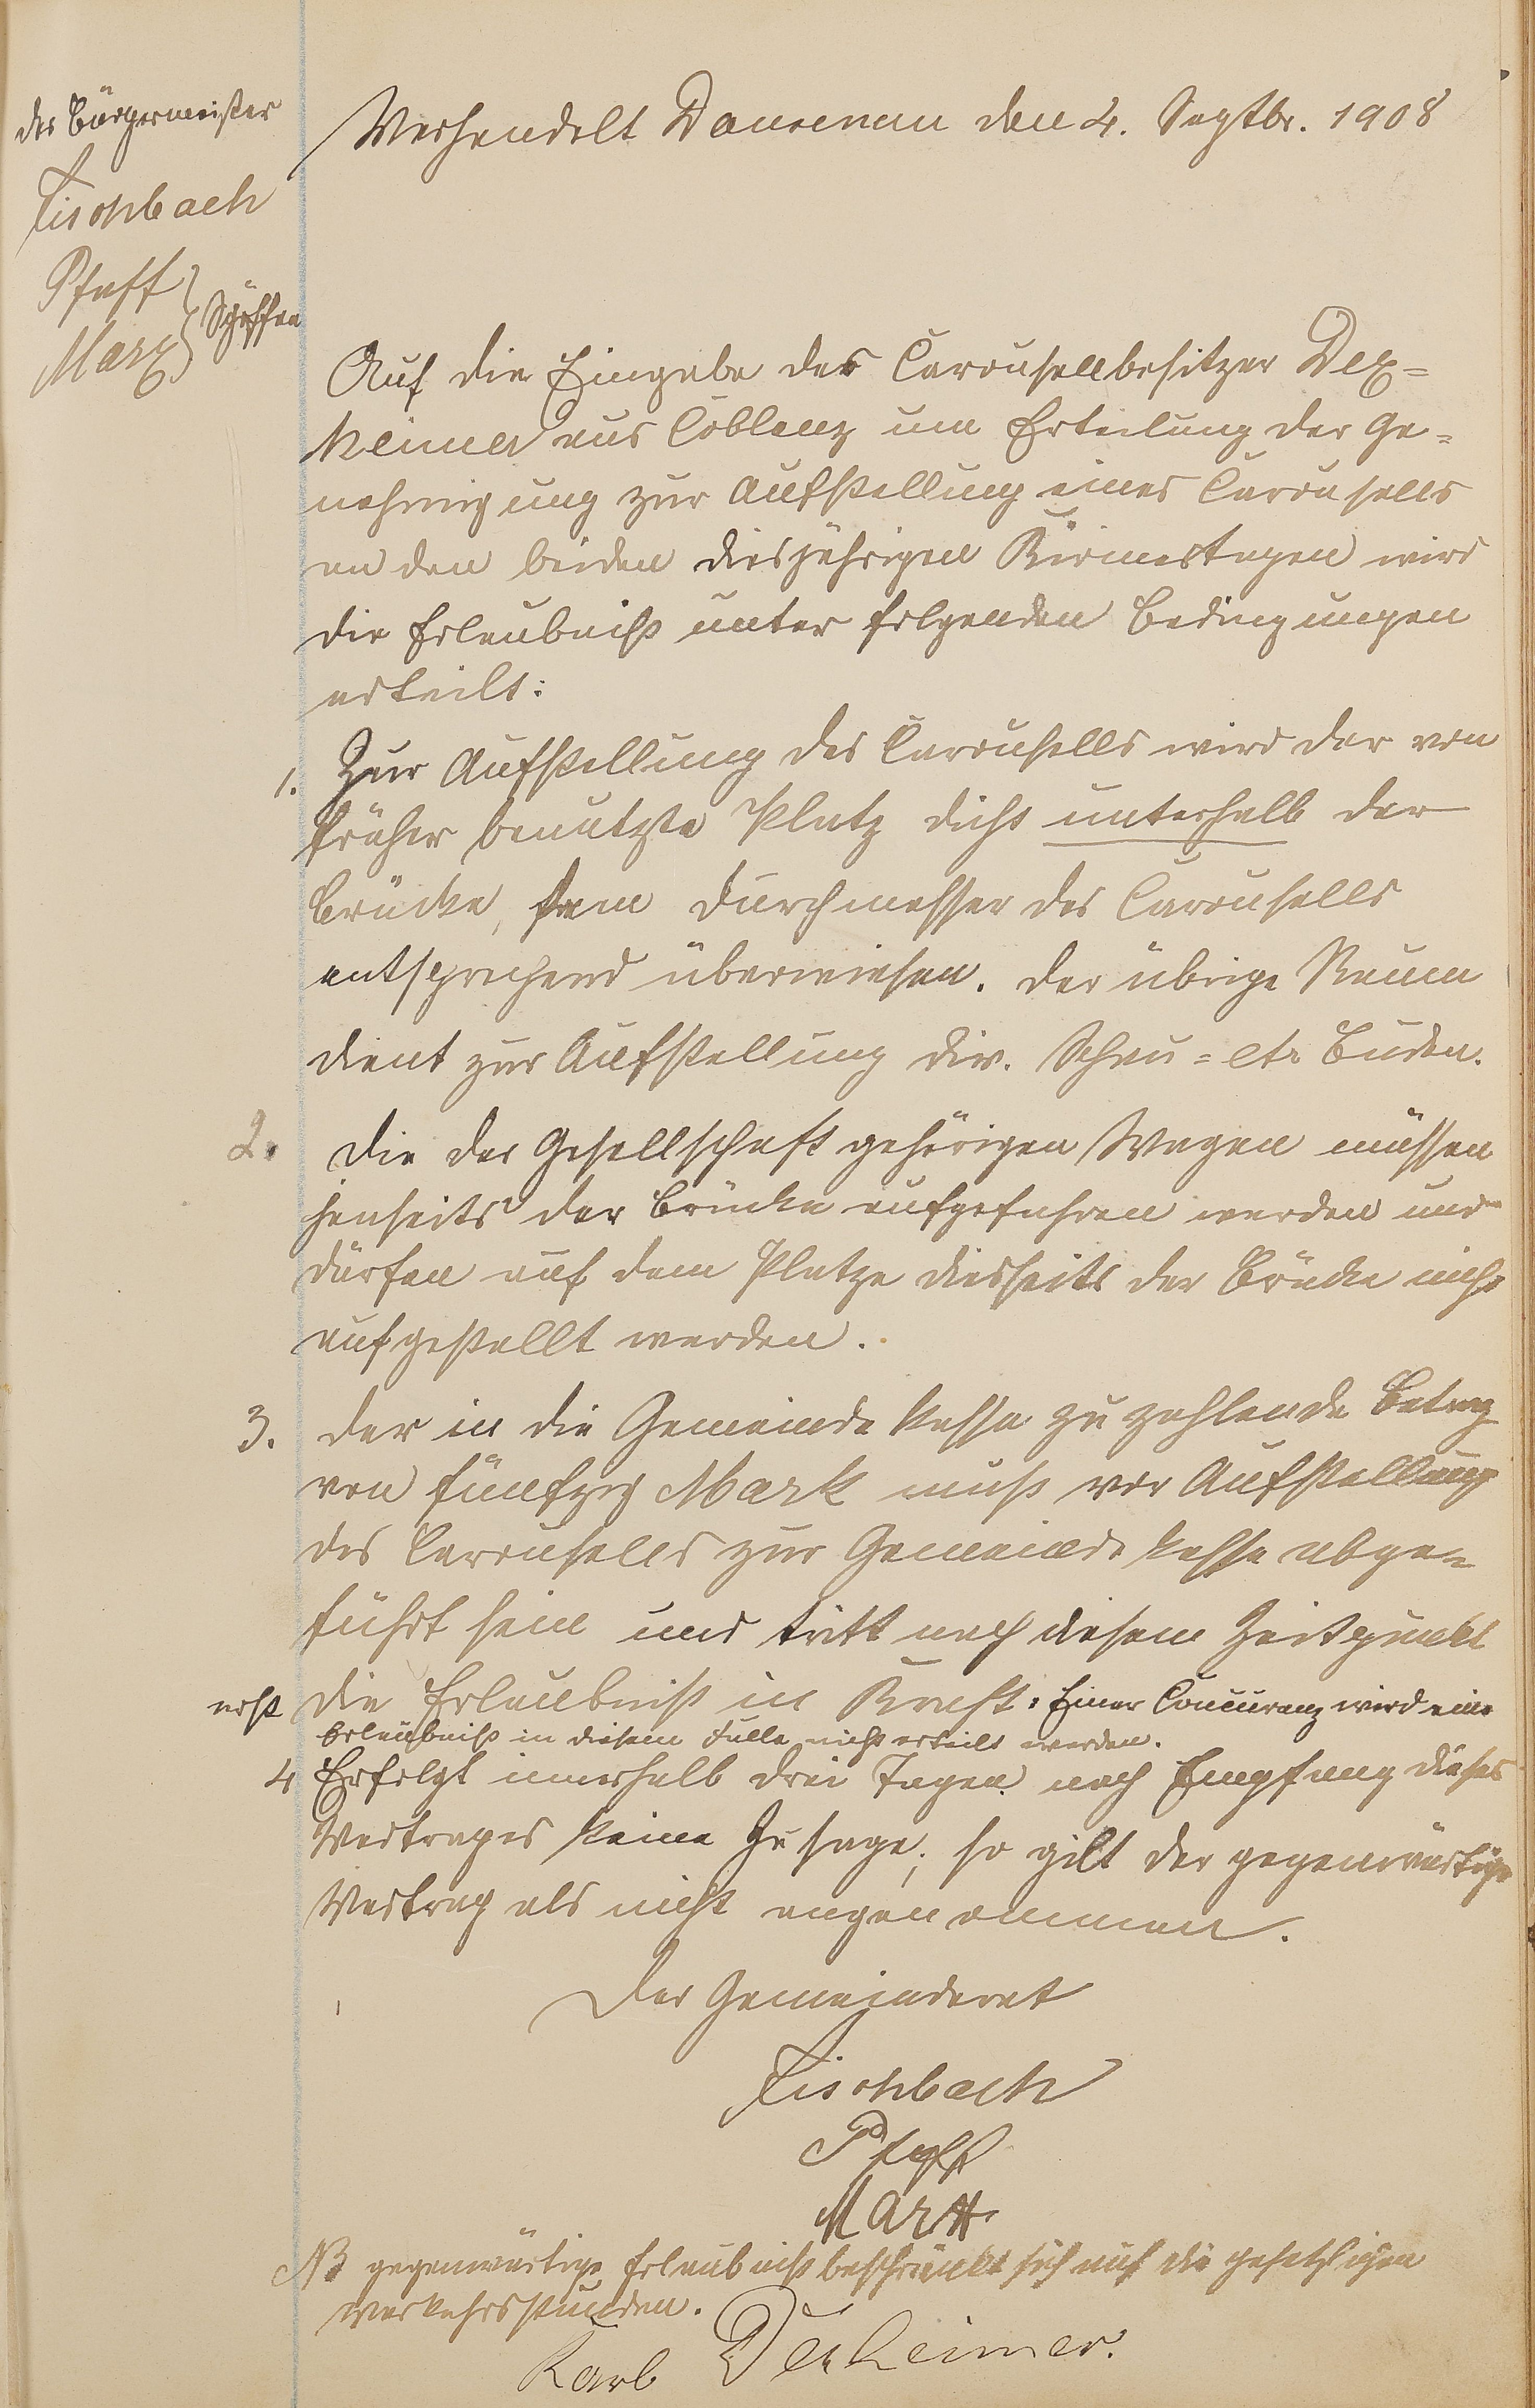 der Bürgermeister
Fischbach
Pfaff
Marx } Schöffen
Verhandelt Dausenau den 4. Septbr. 1908
Auf die Eingabe des Carousellbesitzer Dex-
heimer aus Coblenz um Erteilung der Ge-
nehmigung zur Aufstellung eines Carousells
an den beiden diesjährigen Kirmestagen wird
die Erlaubniß unter folgenden Bedingungen
erteilt:
1. Zur Aufstellung des Carousells wird der von
früher benutzte Platz dicht unterhalb der
Brücke, dem Durchmesser des Carousells
entsprechend überwiesen. Der übrige Raum
dient zur Aufstellung div. Schau- etc Buden.
2. Die der Gesellschaft gehörigen Wagen müssen
jenseits der Brücke aufgefahren werden und
dürfen auf dem Platze diesseits der Brücke nicht
aufgestellt werden.
3. Der in die Gemeindekasse zu zahlende Betrag
von fünfzig Mark muß vor Aufstellung
des Carousells zur Gemeindekasse abge-
führt sein und tritt nach diesem Zeitpunkt
erst die Erlaubniß in Kraft. Einer Concuranz wird eine
Erlaubniß in diesem Falle nicht erteilt werden.
4 Erfolgt innerhalb drei Tagen nach Empfang dieses
Vertrages keine Zusage, so gilt der gegenwärtige
Vertrag als nicht angenommen.
Der Gemeinderat
Fischbach
Pfaff
Marx
NB gegenwärtige Erlaubniß beschränkt sich auf die gesetzlichen
Verkehrsstunden.
Karl Dexheimer.